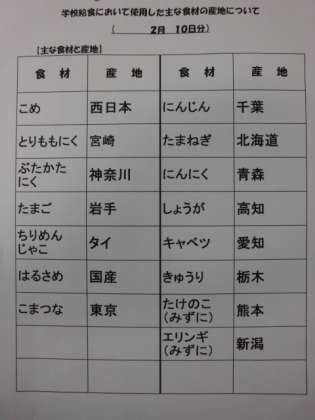 学校給食において使用した主な食材の産地について
( 2月 10日分)
【主な食材と産地】
食 材 産 地 食 材 産 地
こめ 西日本 にんじん 千葉
とりももにく 宮崎 たまねぎ 北海道
ぶたかた
にく 神奈川 にんにく 青森
たまご 岩手 しょうが 高知
ちりめん
じゃこ タイ キャベツ 愛知
はるさめ 国産 きゅうり 栃木
こまつな 東京 たけのこ
(みずに) 熊本
エリンギ
(みずに) 新潟